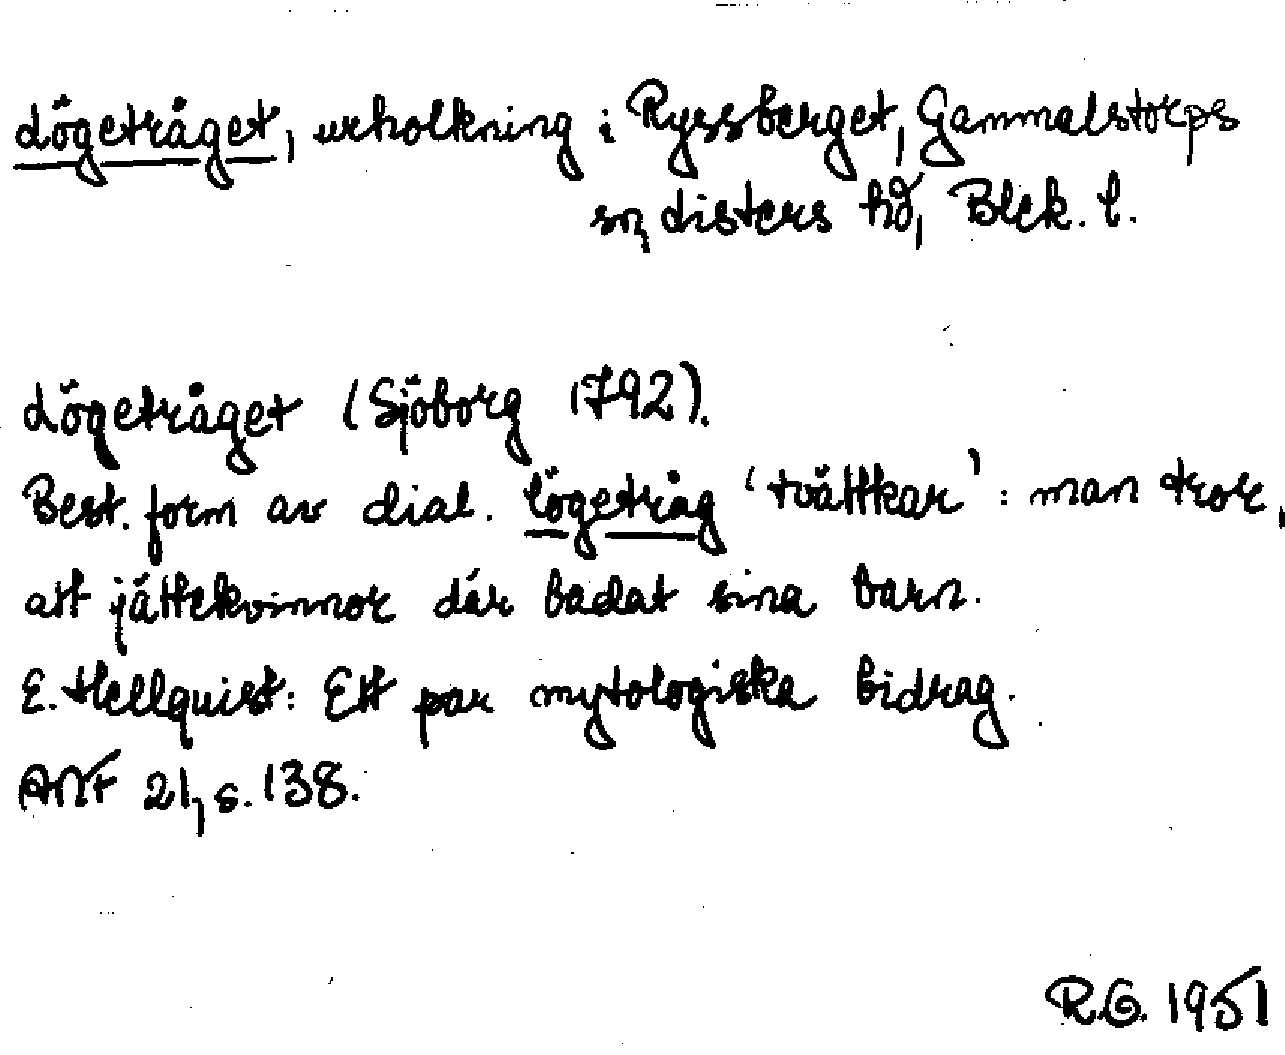 Lögetråget, urholkning i Ryssberget, Gammalstorps
sn, Listers hd, Blek. l.
Lögetråget (Sjöborg 1792).
Best. form av dial. lögetråg 'tvättkar': man tror,
att jättekvinnor där badat sina barn.
E. Hellquist: Ett par mytologiska bidrag.
ANF 21, s. 138.
R.G. 1951